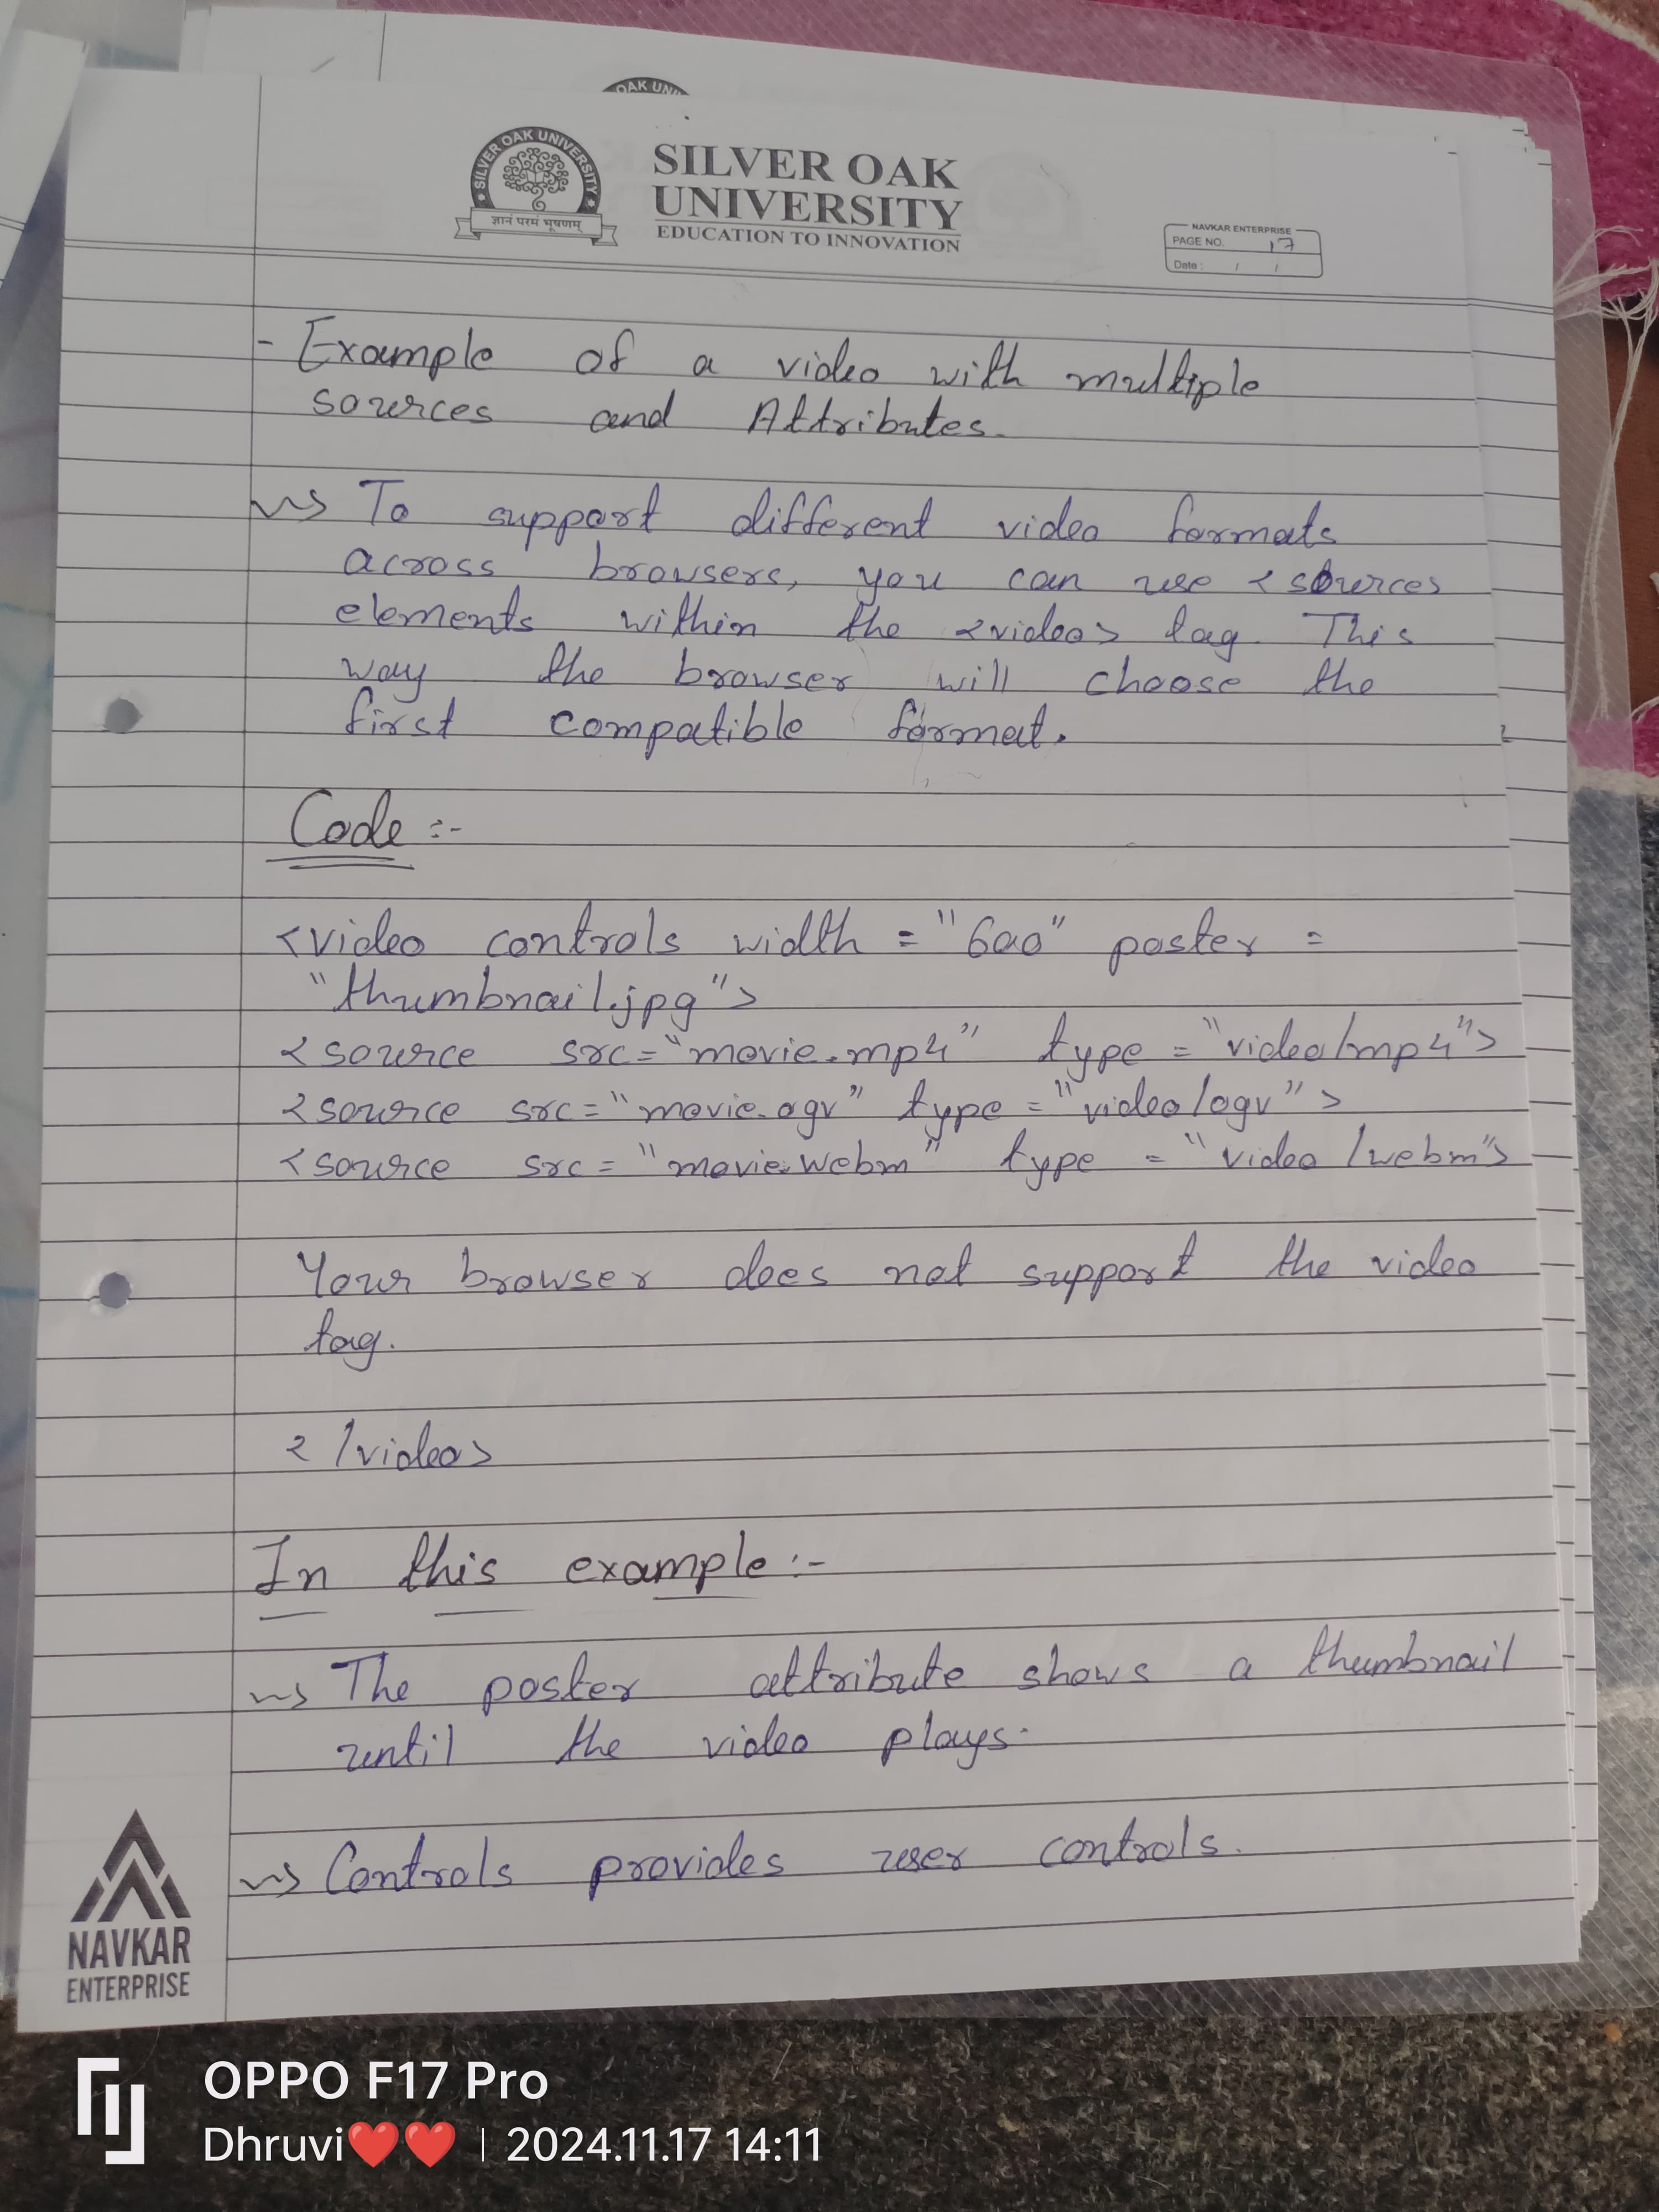 OAK UNI
SILVER OAK UNIVERSITY
ज्ञानं परमं भूषणम्
SILVER OAK
UNIVERSITY
EDUCATION TO INNOVATION
NAVKAR ENTERPRISE
PAGE NO. 17
Date : / /
- Example of a video with multiple
sources and Attributes.
To support different video formats
across browsers, you can use <source>
elements within the <video> tag. This
way the browser will choose the
first compatible format.
Code :-
<video controls width = "600" poster =
"thumbnail.jpg">
<source src="movie.mp4" type = "video/mp4">
<source src="movie.ogv" type = "video/ogv">
<source src = "movie.webm" type = "video/webm">
Your browser does not support the video
tag.
</video>
In this example :-
The poster attribute shows a thumbnail
until the video plays.
Controls provides user controls.
NAVKAR
ENTERPRISE
OPPO F17 Pro
Dhruvi❤️❤️ | 2024.11.17 14:11